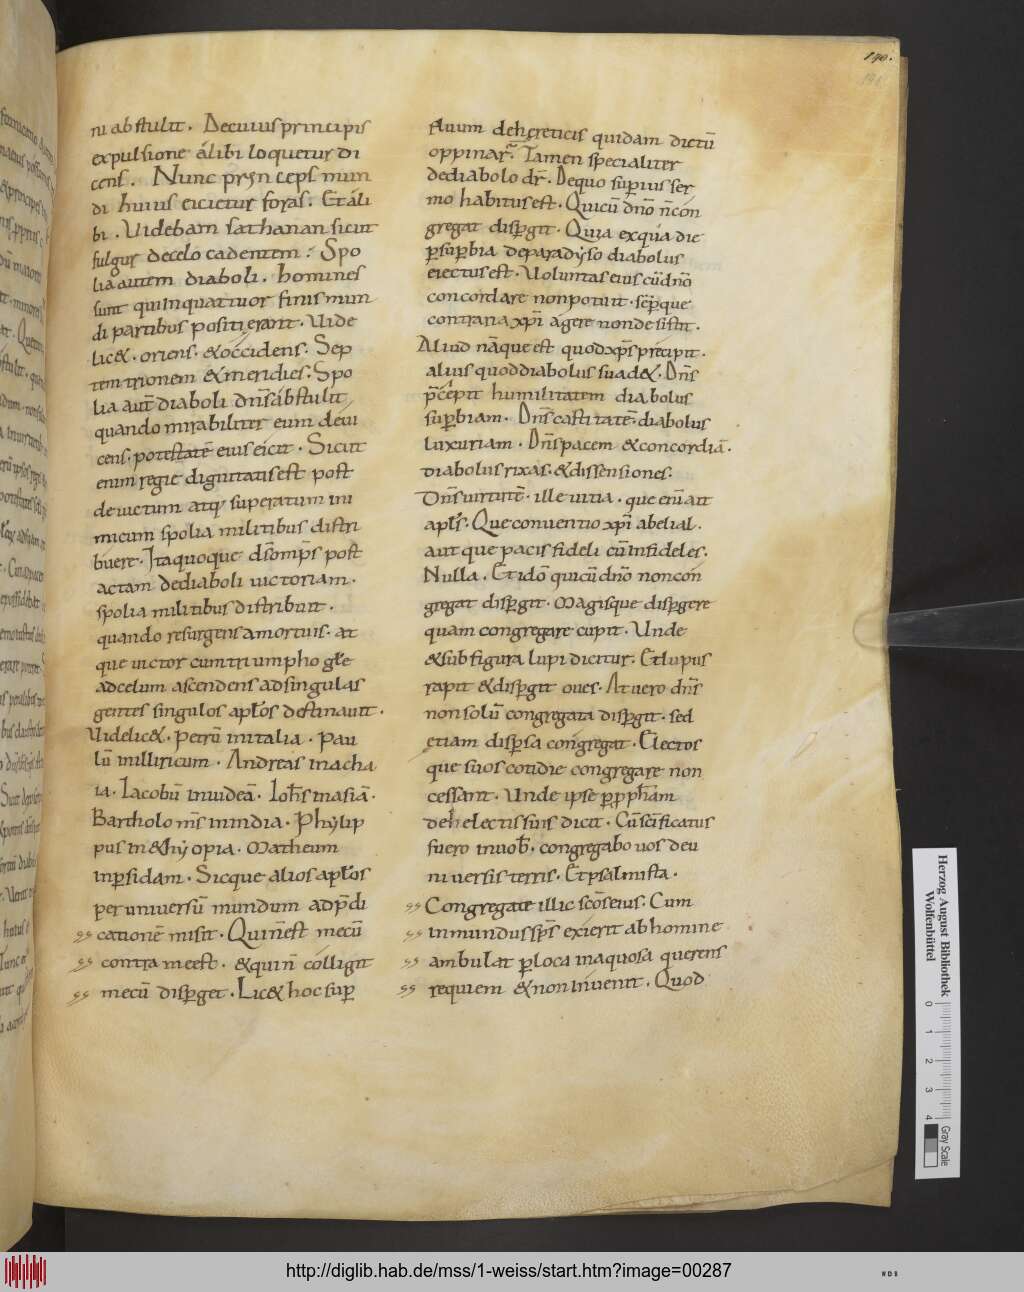 140.
ni abstulit. Decuius principis
expulsione alibi loquetur di
cens. Nunc prynceps mun
di huius eicietur foras. Et ali
bi. Uidebam sathanan sicut
fulgur decelo cadentem. Spo
lia autem diaboli. homines
sunt quinquattuor finis mun
di partibus positi erant. Uide
lic&. oriens. &occidens. Sep
temtrionem &meridies. Spo
lia aut̄ diaboli dn̄s abstulit
quando mirabiliter eum deui
cens. potestatē eius eicit. Sicut
enim regie dignitatis est post
deuictum atq; superatum ini
micum spolia militibus distri
buere. Ita quoque d̄s omp̄s post
actam dediaboli uictoriam.
spolia militibus distribuit.
quando resurgens amortuis. at
que uictor cum triumpho głe
adcelum ascendens adsingulas
gentes singulos apłos destinauit.
Uidelic&. Petrū initalia. Pau
lū inilliricum. Andreas inacha
ia. Iacobū iniudeā. Ioħs inasiā.
Bartholom̄s inindia. Phylip
pus in&hyopia. Matheum
inp̄sidam. Sicque alios apłos
peruniuersū mundum adp̄di
cationē misit. Quin̄est mecū
contra me est. &quin̄ colligit
mecū disp̄get. Lic& hoc sup̄
stuum dehereticis quidam dictū
oppinar̄. Tamen specialiter
dediabolo dr̄. Dequo superius ser
mo habitus est. Quicū dn̄o n̄con
gregat disp̄git. Quia exqua die
p̄sup̄bia deparadyso diabolus
eiectus est. Uoluntas eius cū dn̄o
concordare nonpotuit. sēp̄que
contraria xp̄i agere nondesistit.
Aliud nāque est quod xp̄s precipit.
alius quod diabolus suad&. Dn̄s
p̄cepit humilitatem diabolus
sup̄biam. Dn̄s castitatē. diabolus
luxuriam. Dn̄s pacem &concordiā.
diabolus rixas. &dissensiones.
Dn̄s uirtutē. ille uitia. que enī ait
apłs. Que conuentio xp̄i abelial.
aut que pacis fideli cū infideles.
Nulla. Et idō quicū dn̄o noncon
gregat disp̄git. Magisque disp̄gere
quam congregare cupit. Unde
&sub figura lupi dicitur. Et lupus
rapit &disp̄git oues. At uero dn̄s
nonsolū congregata disp̄git. sed
etiam disp̄sa congregat. Electos
que suos cotidie congregare non
cessant. Unde ipse p̄ p̄ph̄am
dehelectis suis dicit. Cū sc̄ificatus
fuero inuob̄. congregabo uos deu
niuersis terris. Et psalmista.
Congregate illic sc̄os eius. Cum
inmundus sp̄s exierit abhomine
ambulat p̄loca inaquosa querens
requiem &non inuenit. Quod
Herzog August Bibliothek
Wolfenbüttel
0 1 2 3 4
Gray Scale
http://diglib.hab.de/mss/1-weiss/start.htm?image=00287